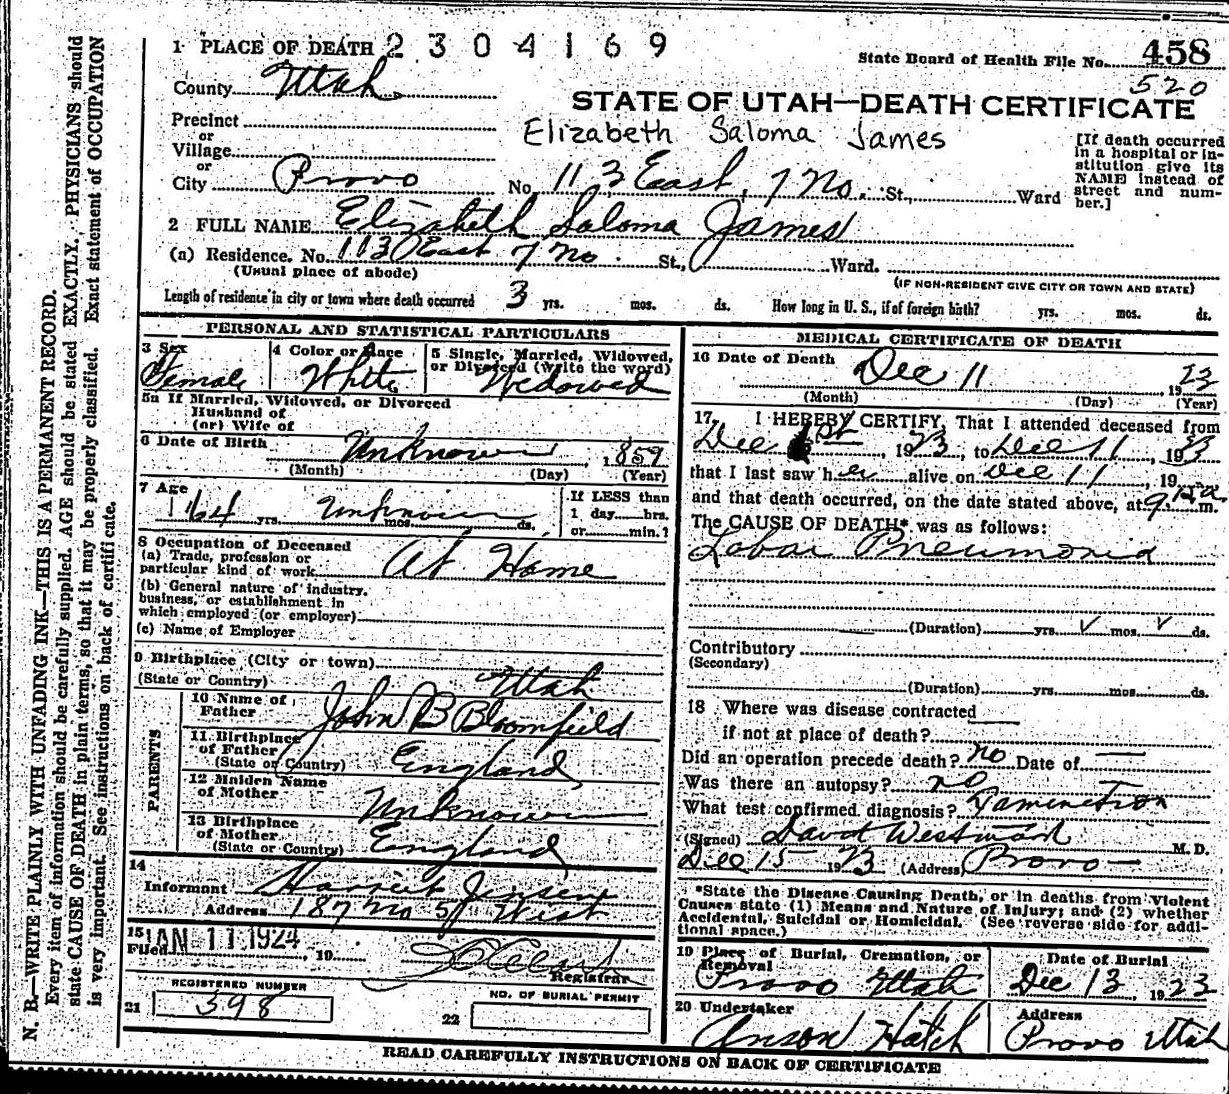 1 PLACE OF DEATH 2304169
State Board of Health File No. 458
520
County Utah
STATE OF UTAH—DEATH CERTIFICATE
Precinct
or
Village
or
City Provo No. 113 East, 7 No. St., Ward
Elizabeth Saloma James
[If death occurred in a hospital or institution give its NAME instead of street and number.]
2 FULL NAME Elizabeth Saloma James
(a) Residence. No. 113 East 7 No. St., Ward.
(Usual place of abode)
(IF NON-RESIDENT GIVE CITY OR TOWN AND STATE)
Length of residence in city or town where death occurred 3 yrs. mos. ds. How long in U. S., if of foreign birth? yrs. mos. ds.
PERSONAL AND STATISTICAL PARTICULARS
3 Sex Female
4 Color or Race White
5 Single, Married, Widowed, or Divorced (write the word) Widowed
5a If Married, Widowed, or Divorced
Husband of
(or) Wife of
6 Date of Birth Unknown, 1859
(Month) (Day) (Year)
7 Age 64 yrs. Unknown mos. ds.
If LESS than
1 day hrs.
or min.?
8 Occupation of Deceased
(a) Trade, profession or
particular kind of work At Home
(b) General nature of industry,
business, or establishment in
which employed (or employer)
(c) Name of Employer
9 Birthplace (City or town)
(State or Country) Utah
PARENTS
10 Name of
Father John B Bloomfield
11 Birthplace
of Father
(State or Country) England
12 Maiden Name
of Mother Unknown
13 Birthplace
of Mother
(State or Country) England
14
Informant Harriet Jensen
Address 187 No 5 West
15
Filed JAN 11 1924, 19
Registrar
REGISTERED NUMBER
21 398
NO. OF BURIAL PERMIT
22
MEDICAL CERTIFICATE OF DEATH
16 Date of Death Dec 11 1923
(Month) (Day) (Year)
17 I HEREBY CERTIFY, That I attended deceased from
Dec 1st, 1923, to Dec 11, 1923
that I last saw her alive on Dec 11, 19
and that death occurred, on the date stated above, at 9 m.
The CAUSE OF DEATH* was as follows:
Lobar Pneumonia
(Duration) yrs. mos. ds.
Contributory
(Secondary)
(Duration) yrs. mos. ds.
18 Where was disease contracted
if not at place of death?
Did an operation precede death? no Date of
Was there an autopsy? no
What test confirmed diagnosis?
(Signed) David Westwood M. D.
Dec 15 1923 (Address) Provo
*State the Disease Causing Death, or in deaths from Violent
Causes state (1) Means and Nature of Injury; and (2) whether
Accidental, Suicidal or Homicidal. (See reverse side for addi-
tional space.)
19 Place of Burial, Cremation, or
Removal Provo Utah
Date of Burial
Dec 13, 1923
20 Undertaker
Anson Hatch
Address
Provo Utah
READ CAREFULLY INSTRUCTIONS ON BACK OF CERTIFICATE
N. B.—WRITE PLAINLY WITH UNFADING INK—THIS IS A PERMANENT RECORD.
Every item of information should be carefully supplied. AGE should be stated EXACTLY. PHYSICIANS should
state CAUSE OF DEATH in plain terms, so that it may be properly classified. Exact statement of OCCUPATION
is very important. See instructions on back of certificate.